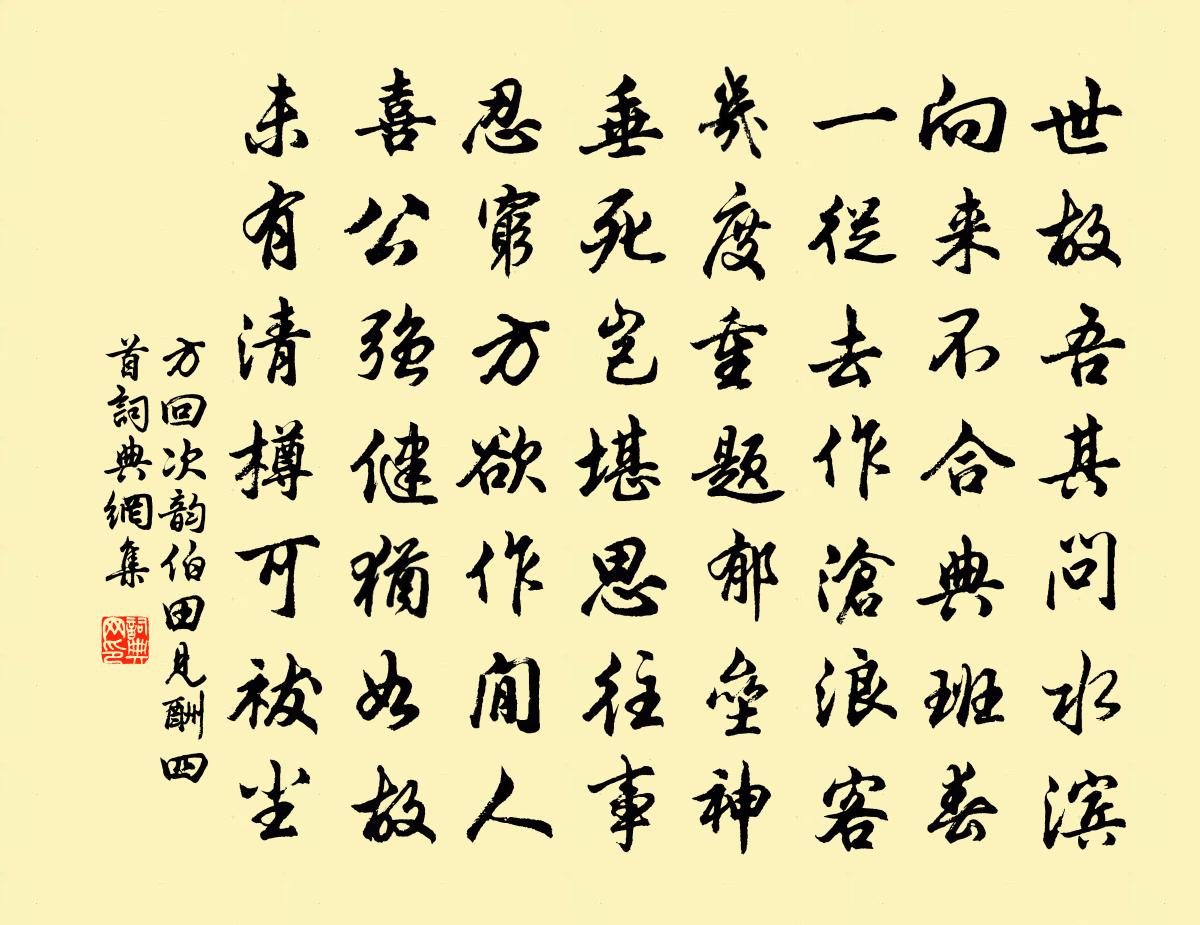 世故吾其问水滨
向来不合典班春
一從去作滄浪客
幾度重题郁垒神
垂死岂堪思往事
忍窮方欲作閒人
喜公強健猶如故
未有清樽可祓尘
方回次韵伯田見酬四
首詞典網集
詞典网印